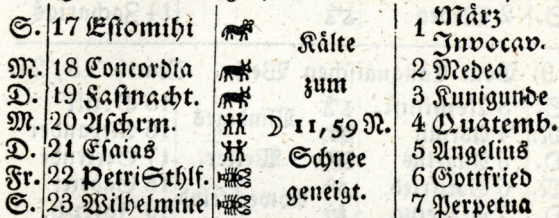 S. 17 Estomihi Kälte 1 März Invocav.
M. 18 Concordia 2 Medea
D. 19 Fastnacht. zum 3 Kunigunde
M. 20 Aschrm. ☽ 11, 59 N. 4 Quatemb.
D. 21 Esaias Schnee 5 Angelius
Fr. 22 Petri Sthlf. geneigt. 6 Gottfried
S. 23 Wilhelmine 7 Perpetua